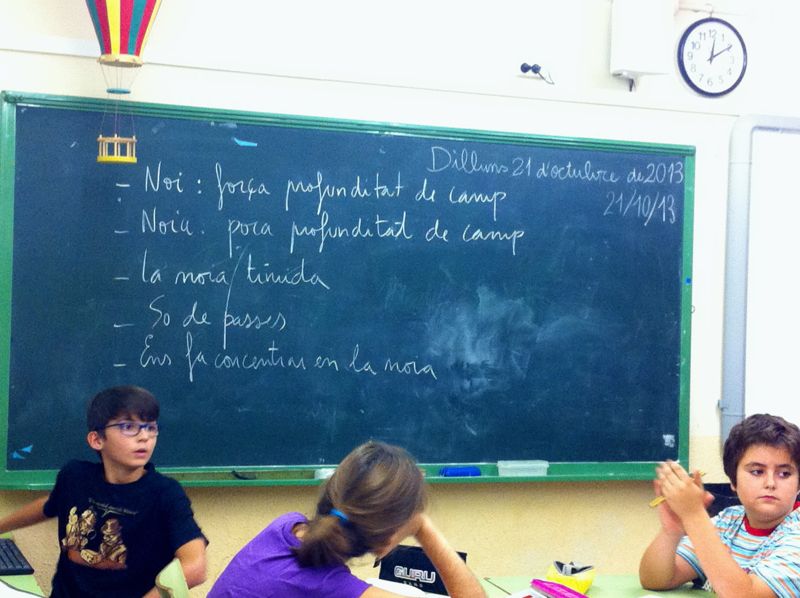 Dilluns 21 d'octubre de 2013
21/10/13
- Noi : força profunditat de camp
- Noia. poca profunditat de camp
- la noia tímida
- So de passes
- Ens fa concentrar en la noia
GURU